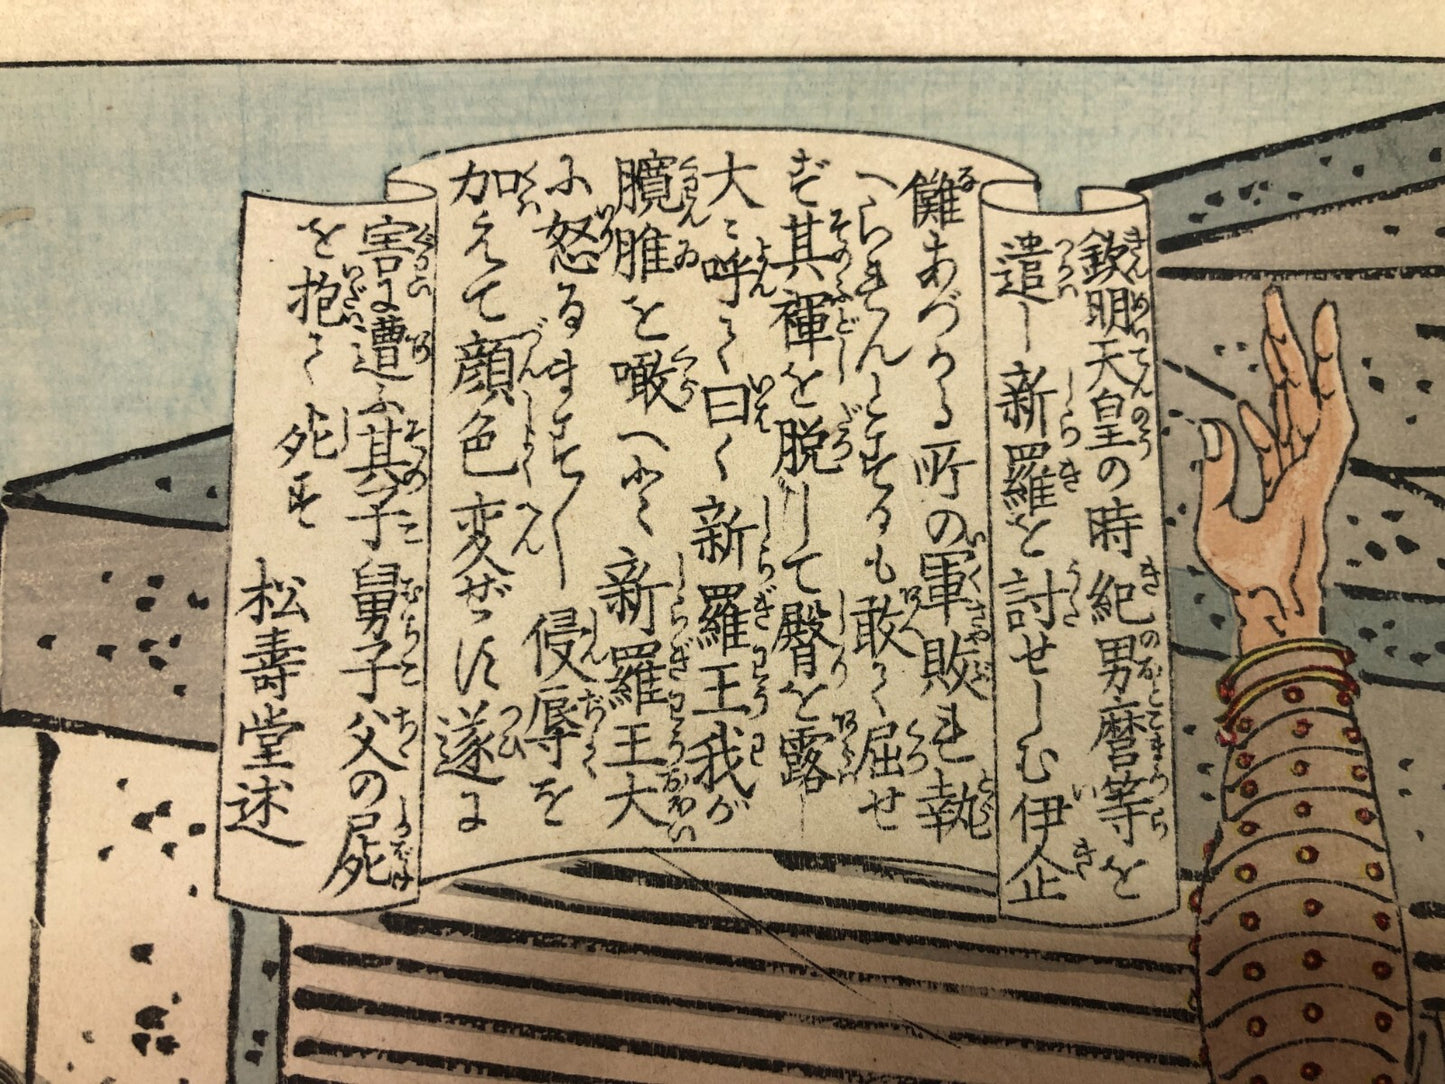 欽明天皇の時紀男麿等を
遣し新羅を討せしむ伊企
儺あづかる所の軍敗れ執
へられんとするも敢て屈せ
ず其褌を脱して臀を露
大に呼て曰く新羅王我が
臗脽を噉へと新羅王大
に怒るます〱侵辱を
加えて顔色変ぜず遂に
害に遭ふ其子舅子父の屍
を抱て死す　松壽堂述